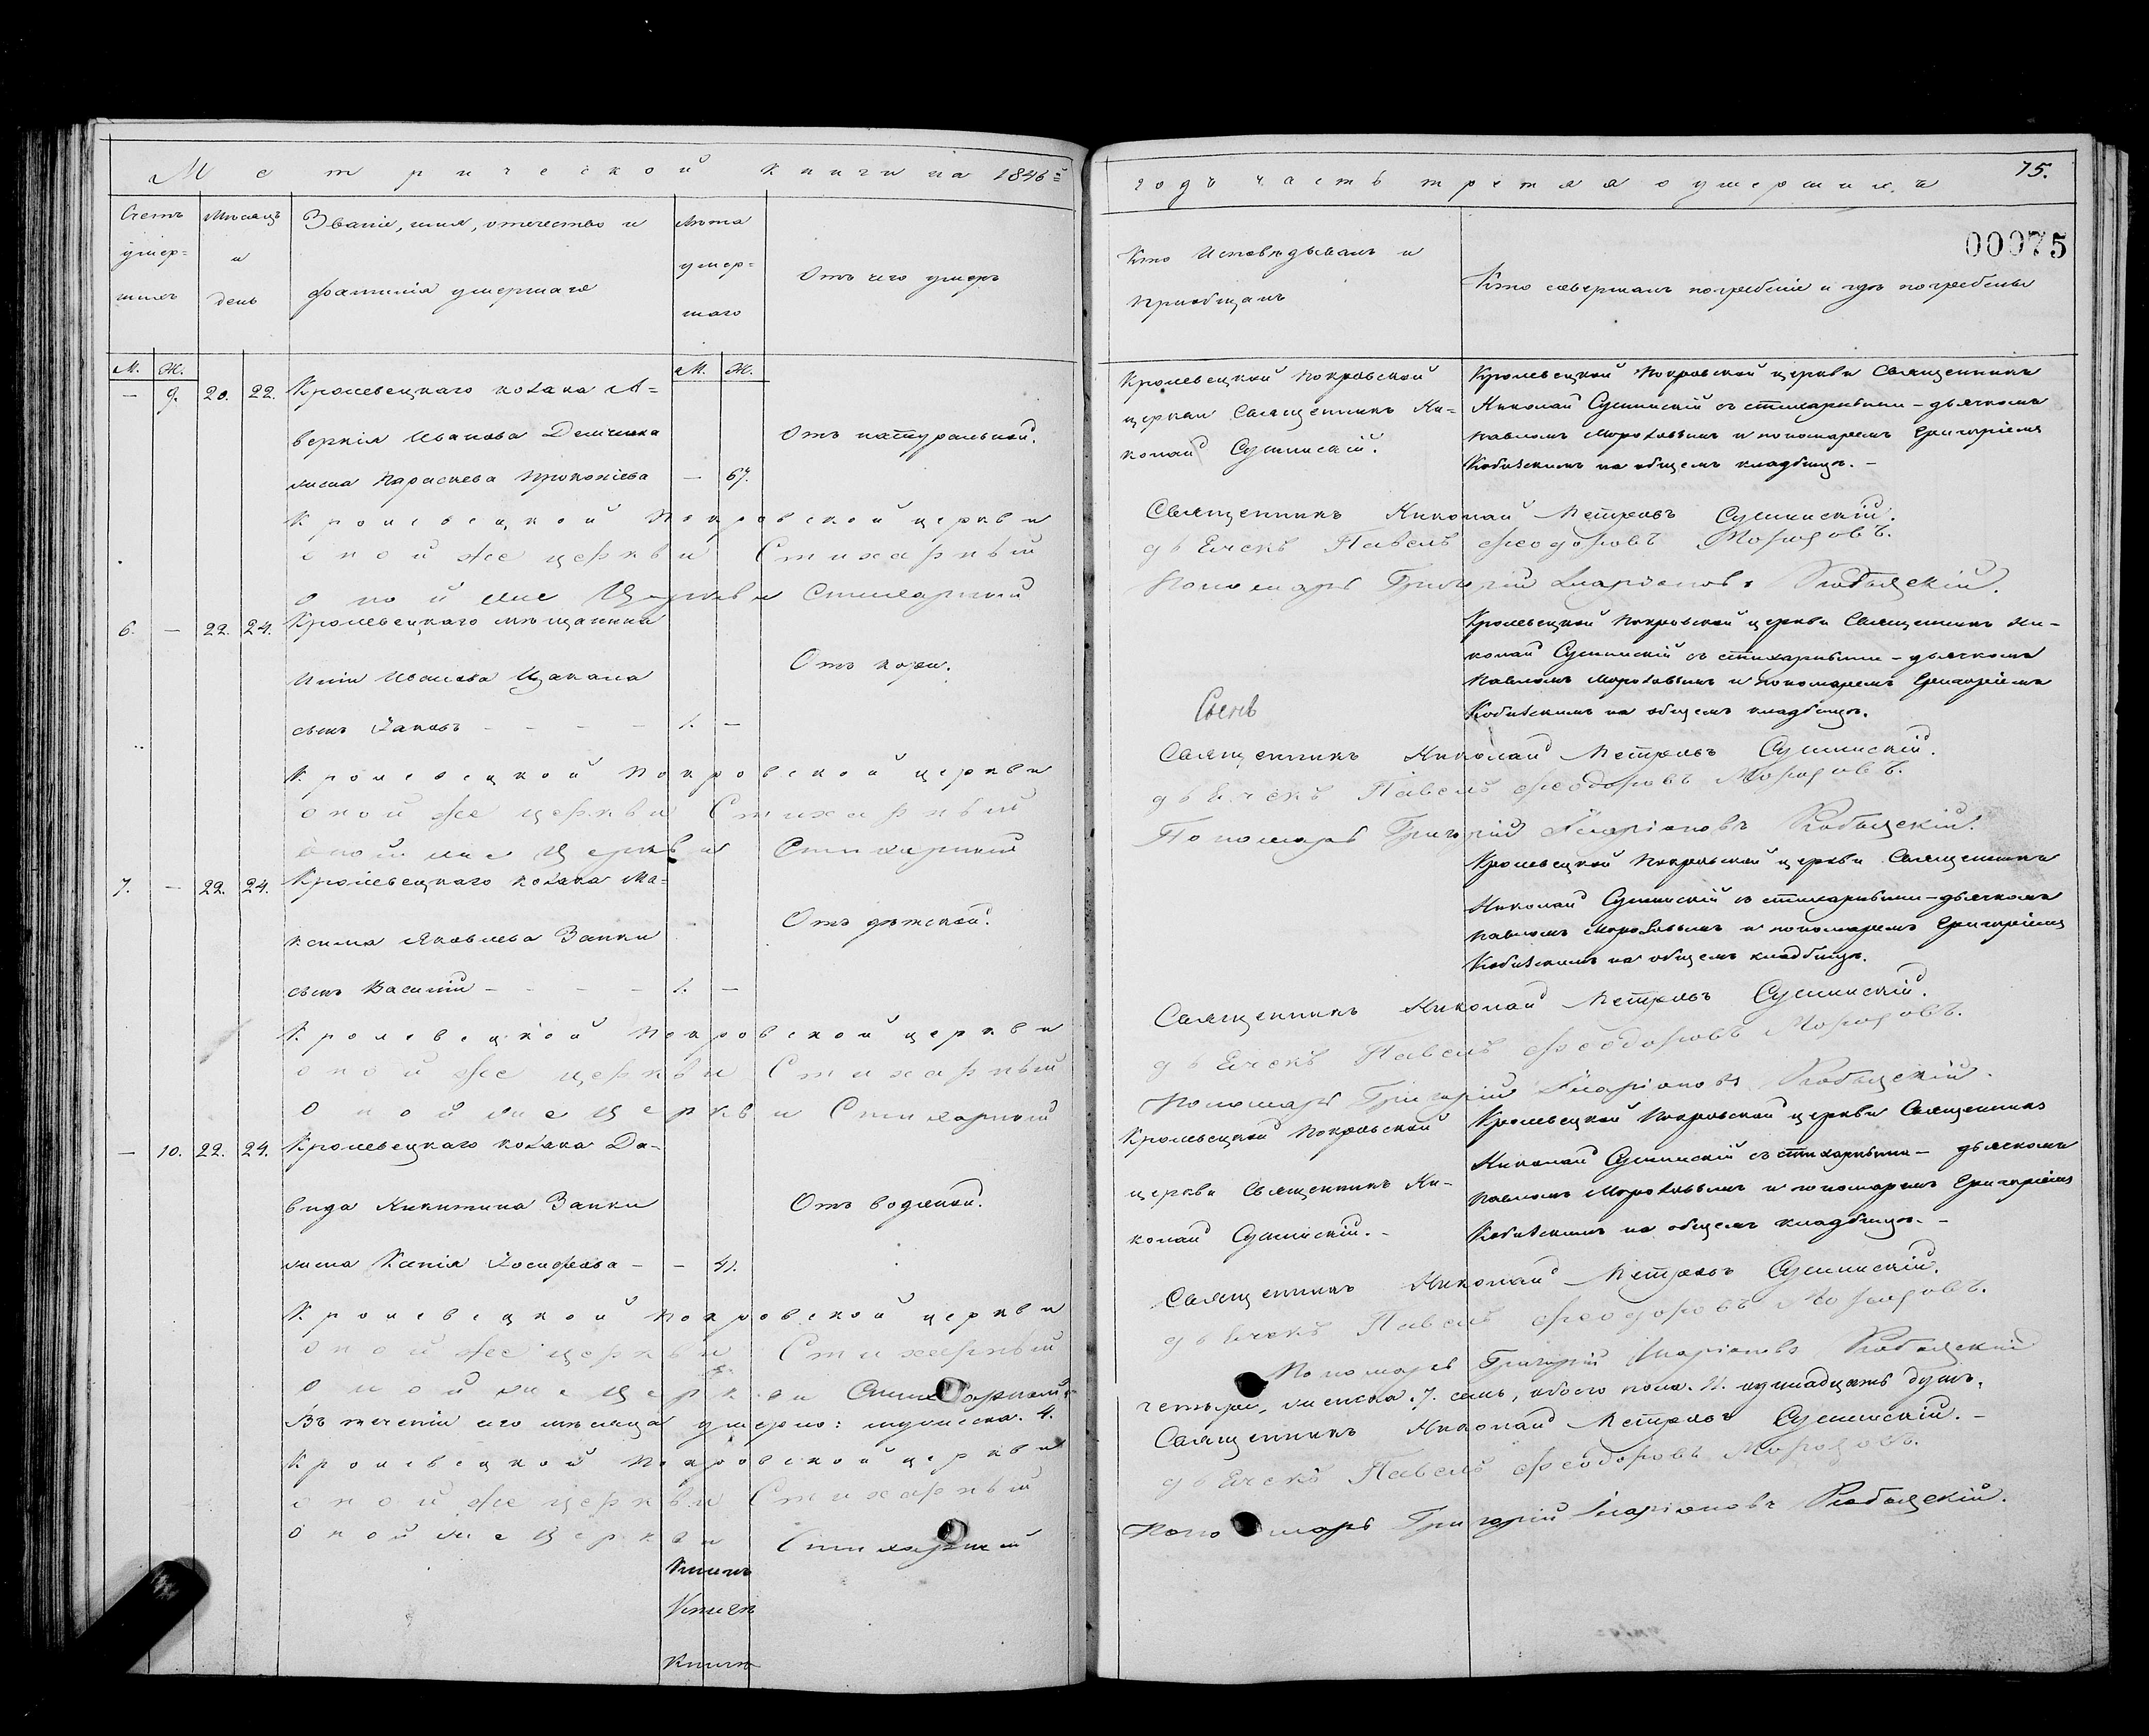 Метрической книги на 1846й
Счетъ умер= шихъ
Мѣсяцъ и день
Званіе, имя, отчество и фамилія умершаго
Лѣта умер= шаго
Отъ чего умеръ
М. Ж. М. Ж.
— 9. 20. 22. Кролевецкаго козака А=
веркія Иванова
Отъ натуральной.
жена Параскева Прокопіева — 67.
Кролевецкой Покровской церкви
оной же церкви Стихарный
оной же Церкви Стихарный
6. — 22. 24. Кролевецкаго мѣщанина
Иванова
Отъ кори.
сынъ Іаковъ — — — — 1. —
Кролевецкой Покровской церкви
оной же церкви Стихарный
оной же Церкви Стихарный
7. — 22. 24. Кролевецкаго козака Ма=
ксима Яковлева Заики
Отъ дѣтской.
сынъ Василій — — — — 1. —
Кролевецкой Покровской церкви
оной же церкви Стихарный
оной же Церкви Стихарный
— 10. 22. 24. Кролевецкаго козака Да-
вида Никитина Заики
Отъ водяной.
жена Ксенія Іосифова — —
Кролевецкой Покровской церкви
оной же церкви Стихарный
оной же Церкви Стихарный
Въ теченіи сего мѣсяца умерло: мужеска. 4.
Кролевецкой Покровской церкви
оной же церкви Стихарный
оной же Церкви Стихарный
75.
годъ часть третяя о умершихъ
00075
Кто Исповѣдывалъ и пріобщалъ
Кто совершалъ погребеніе и гдѣ погребены
Кролевецкой Покровской
церкви Священникъ Ни-
колай Сушинскій.
Кролевецкой Покровской церкви Священникъ
Николай Сушинскій съ стихарными – дьячкомъ
Павломъ Морозовымъ и пономаремъ Григоріемъ
Кобизскимъ на общемъ кладбищѣ. –
Священникъ Николай Петровъ Сушинскій.
дьячекъ Павелъ Феодоровъ Морозовъ.
Пономарь Григорій Иларіоновъ Кобызскій.
Кролевецкой Покровской церкви Священникъ Ни-
колай Сушинскій съ стихарными – дьячкомъ
Павломъ Морозовымъ и пономаремъ Григоріемъ
Кобизскимъ на общемъ кладбищѣ.
Священникъ Николай Петровъ Сушинскій.
дьячекъ Павелъ Феодоровъ Морозовъ.
Пономарь Григорій Иларіоновъ Кобызскій.
Кролевецкой Покровской церкви Священникъ
Николай Сушинскій съ стихарными – дьячкомъ
Павломъ Морозовымъ и пономаремъ Григоріемъ
Кобизскимъ на общемъ кладбищѣ.
Священникъ Николай Петровъ Сушинскій.
дьячекъ Павелъ Феодоровъ Морозовъ.
Пономарь Григорій Иларіоновъ Кобызскій.
Кролевецкой Покровской
церкви Священникъ Ни-
колай Сушинскій. –
Кролевецкой Покровской церкви Священникъ
Николай Сушинскій съ стихарными – дьячкомъ
Павломъ Морозовымъ и пономаремъ Григоріемъ
Кобизскимъ на общемъ кладбищѣ. –
Священникъ Николай Петровъ Сушинскій.
дьячекъ Павелъ Феодоровъ Морозовъ.
Пономарь Григорій Иларіоновъ Кобызскій
четыре, женска. 7. семь, обоего пола. 11. одинадцать душъ.
Священникъ Николай Петровъ Сушинскій. –
дьячекъ Павелъ Феодоровъ Морозовъ.
Пономарь Григорій Иларіоновъ Кобызскій.